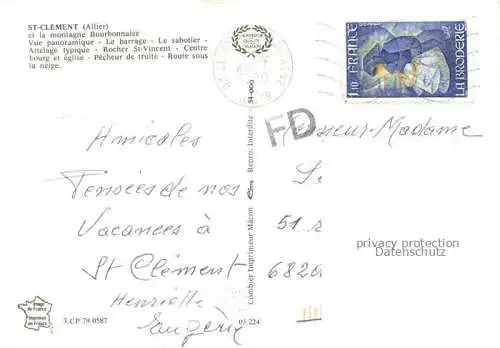 ST-CLÉMENT (Allier)
et la montagne Bourbonnaise
Vue panoramique - Le barrage - Le sabotier -
Attelage typique - Rocher St-Vincent - Centre
bourg et église - Pêcheur de truite - Route sous
la neige.
1,10 FRANCE
LA BRODERIE
FD
Monsieur-Madame
Amicales
Pensées de nos
Vacances à
St Clément
Henriette
Eugène
51
6820
privacy protection
Datenschutz
Combier Imprimeur Mâcon
Repro. Interdite - 54-000
Image de France
Imprimé en France
3.C.P. 79.0587
03.224